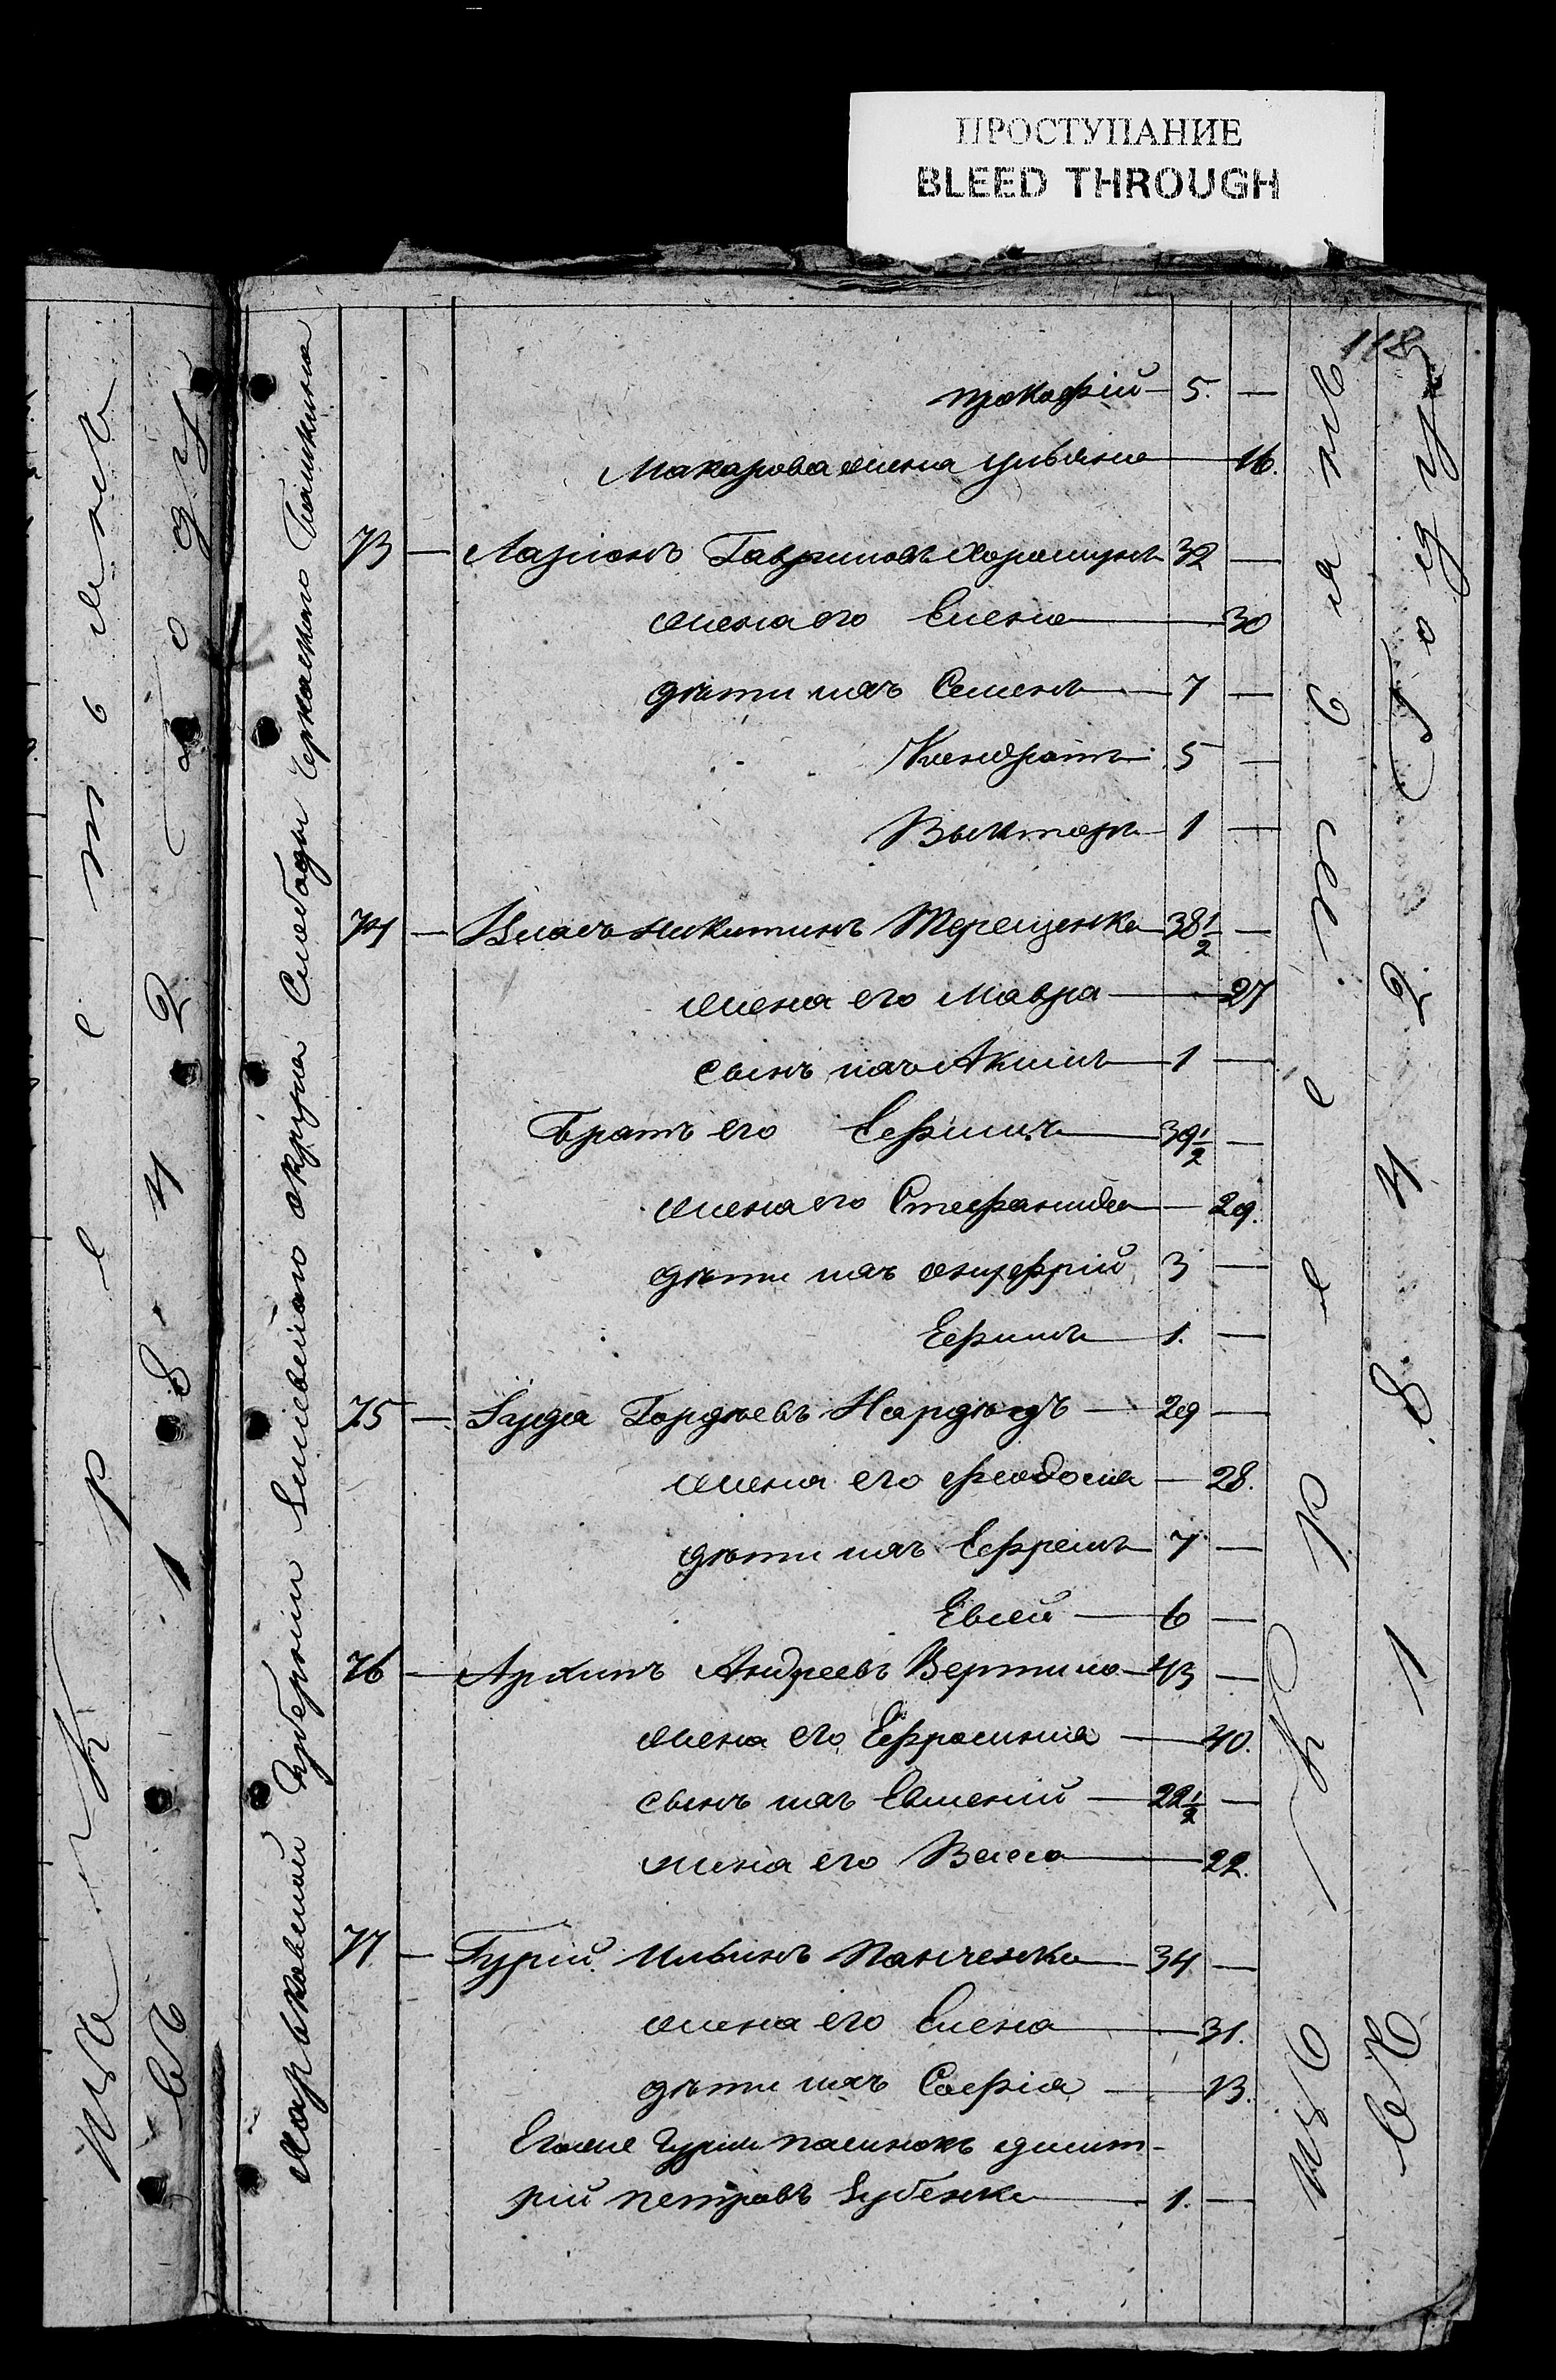 ПРОСТУПАНИЕ
BLEED THROUGH
118
Прокофій 5. —
Макарова жена Ульяна 16.
73 — Ларіонъ Гавриловъ Хорошунъ 32 —
жена его Елена 30
дѣти ихъ Семенъ 7 —
Кондратъ 5 —
Викторъ 1 —
74 — Власъ Никитинъ Терещенко 38½ —
жена его Мавра 27
сынъ ихъ Акимъ 1 —
Братъ его Ефимъ 39½ —
жена его Стефанида — 29.
дѣти ихъ Онуфрій 3 —
Ефимъ 1. —
75 — Гордѣевъ 29 —
жена его Феодосия — 28.
дѣти ихъ Ефремъ 7 —
Евсей 6 —
76 — Архипъ Андреевъ Вертило 43 —
жена его Ефросиния 40.
сынъ ихъ Евгений 22½ —
жена его Васса 22.
77 — Гурій Ильинъ Панченко 34 —
жена его Елена 31.
дѣти ихъ Софія 13.
Егоже Гурия пасынокъ Дмит-
рій Петровъ Зубенко 1. —
Харьковской Губерніи Зміевскаго округа Слободы Черкаскаго Бишкина
переселено
въ 1842 Году
переселены
въ 1842 Году